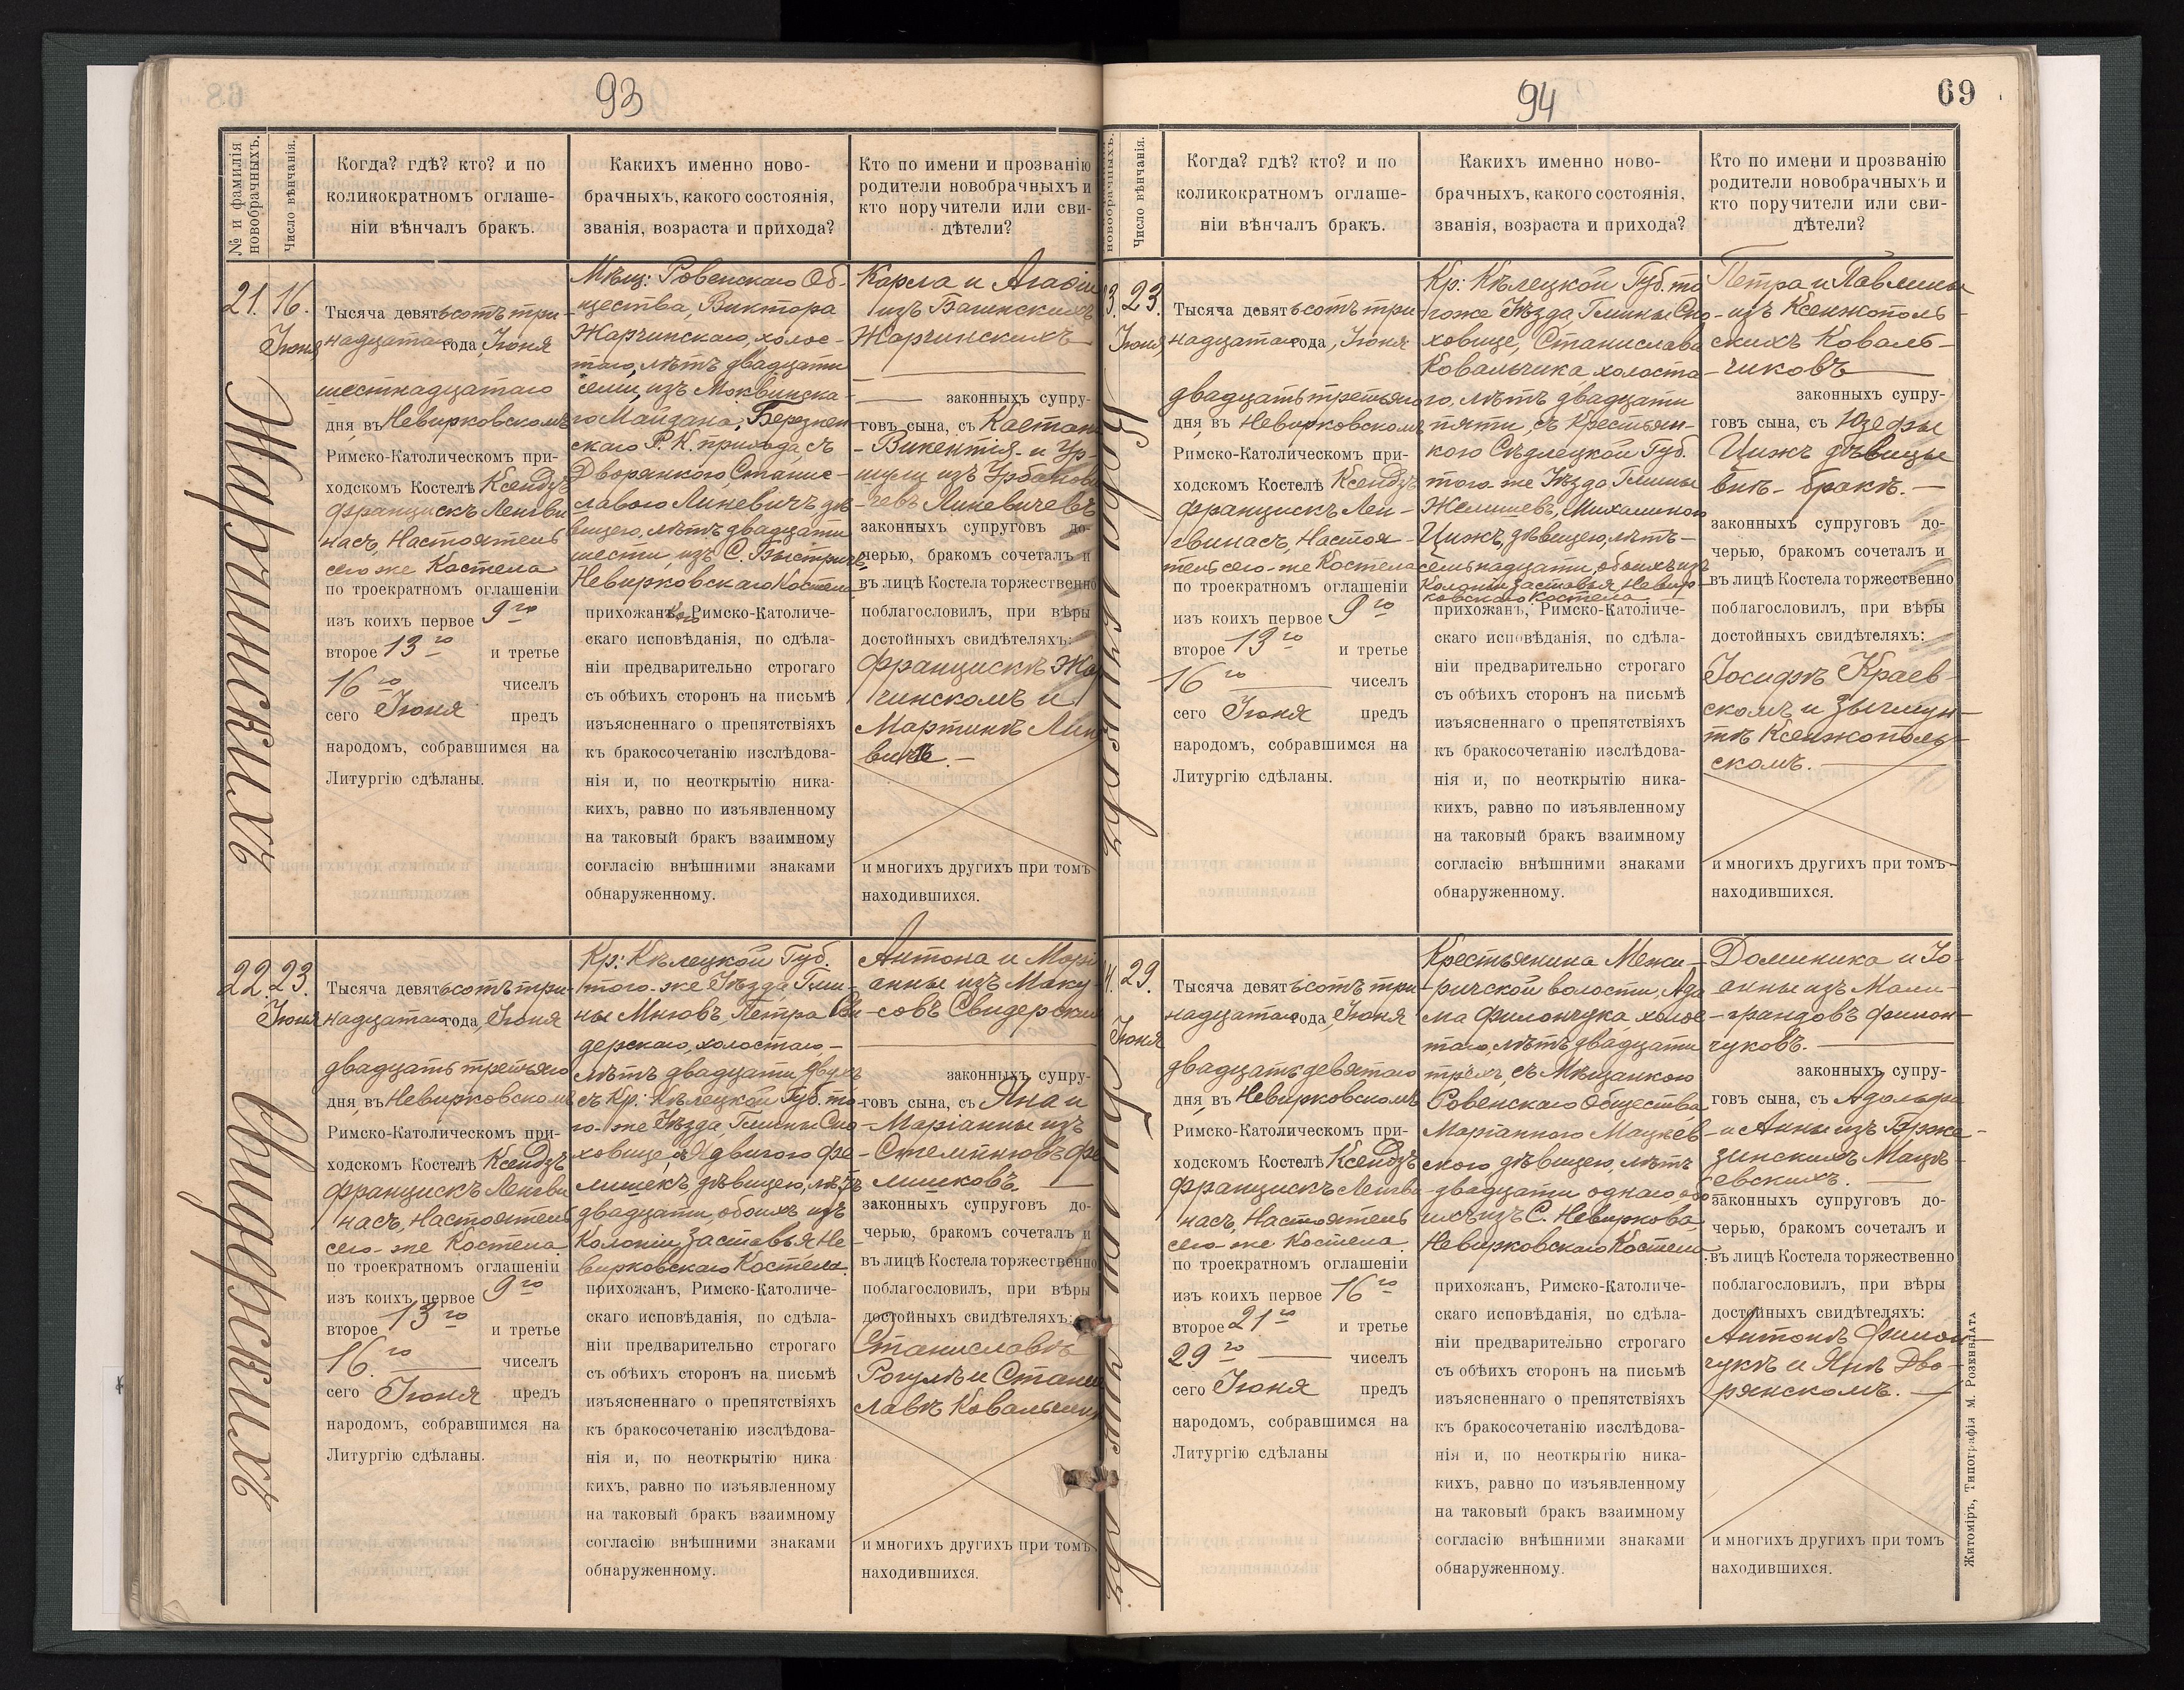 93
№ и фамилія новобрачныхъ.
Число вѣнчанія.
Когда? гдѣ? кто? и по
коликократномъ оглаше-
ніи вѣнчалъ бракъ.
Какихъ именно ново-
брачныхъ, какого состоянія,
званія, возраста и прихода?
Кто по имени и прозванію
родители новобрачныхъ и
кто поручители или сви-
дѣтели?
21.
16.
Іюня
Жарчинскихъ
Тысяча девятьсотъ три-
надцатаго года, Іюня
шестнадцатаго
дня, въ Невирковскомъ
Римско-Католическомъ при-
ходскомъ Костелѣ Ксендзъ
Францискъ Ленгви
насъ, Настоятель
сего же Костела
по троекратномъ оглашеніи
изъ коихъ первое 9го
второе 13го и третье
16го чиселъ
сего Іюня предъ
народомъ, собравшимся на
Литургію сдѣланы.
Мѣщ: Ровенскаго Об-
щества, Виктора
Жарчинскаго, холос-
таго, лѣтъ двадцати
семи, изъ Моквинска-
го Майдана, Березнен-
скаго Р. К. прихода, съ
Дворянкою Станис-
лавою Линкевичъ дѣ
вицею, лѣтъ двадцати
шести, изъ С. Быстричъ,
Невирковскаго Костела
прихожанъ, Римско-Католиче-
скаго исповѣданія, по сдѣла-
ніи предварительно строгаго
съ обѣихъ сторонъ на письмѣ
изъясненнаго о препятствіяхъ
къ бракосочетанію изслѣдова-
нія и, по неоткрытію ника-
кихъ, равно по изъявленному
на таковый бракъ взаимному
согласію внѣшними знаками
обнаруженному.
Карла и Агафіи
изъ Багинскихъ
Жарчинскихъ
законныхъ супру-
говъ сына, съ Каетана
- Викентія - и Ур-
шули изъ Урбанови
чевъ Линкевичевъ
законныхъ супруговъ до-
черью, бракомъ сочеталъ и
въ лицѣ Костела торжественно
поблагословилъ, при вѣры
достойныхъ свидѣтеляхъ:
Францискѣ Жар
чинскомъ и
Мартинѣ Линке
вичѣ. -
и многихъ другихъ при томъ
находившихся.
22.
23.
Іюня
Свидерскихъ
Тысяча девятьсотъ три-
надцатаго года, Іюня
двадцать третьяго
дня, въ Невирковскомъ
Римско-Католическомъ при-
ходскомъ Костелѣ Ксендзъ
Францискъ Ленгви
насъ, Настоятель
сего-же Костела
по троекратномъ оглашеніи
изъ коихъ первое 9го
второе 13го и третье
16.го чиселъ
сего Іюня предъ
народомъ, собравшимся на
Литургію сдѣланы.
Кр: Кѣлецкой Губ.
того-же Уѣзда, Гми-
ны Мнювъ, Петра Сви
дерскаго, холостаго, -
лѣтъ двадцати двухъ
съ Кр. Кѣлецкой Губ. то-
го-же Уѣзда, Гмины Сно
ховице, Ядвигою Фе-
лишекъ, дѣвицею, лѣтъ
двадцати, обоихъ изъ
Колоніи Заставья Не
вирковскаго Костела.
прихожанъ, Римско-Католиче-
скаго исповѣданія, по сдѣла-
ніи предварительно строгаго
съ обѣихъ сторонъ на письмѣ
изъясненнаго о препятствіяхъ
къ бракосочетанію изслѣдова-
нія и, по неоткрытію ника
кихъ, равно по изъявленному
на таковый бракъ взаимному
согласію внѣшними знаками
обнаруженному.
Антона и Марі
анны изъ Маку
совъ Свидерских
законныхъ супру-
говъ сына, съ Яна и
Маріанны изъ
Стемпнювъ Фе
лишковъ.
законныхъ супруговъ до-
черью, бракомъ сочеталъ и
въ лицѣ Костела торжественно
поблагословилъ, при вѣры
достойныхъ свидѣтеляхъ:
Станиславѣ
Рогулѣ и Станис
лавѣ Ковальчик
и многихъ другихъ при томъ
находившихся.
94
69
новобрачныхъ.
Число вѣнчанія.
Когда? гдѣ? кто? и по
коликократномъ оглаше-
ніи вѣнчалъ бракъ.
Какихъ именно ново-
брачныхъ, какого состоянія,
званія, возраста и прихода?
Кто по имени и прозванію
родители новобрачныхъ и
кто поручители или сви-
дѣтели?
3.
23.
Іюня
Тысяча девятьсотъ три-
надцатаго года, Іюня
двадцать третьяго
дня, въ Невирковскомъ
Римско-Католическомъ при-
ходскомъ Костелѣ Ксендзъ
Францискъ Лен-
гвинасъ, Настоя-
тель сего-же Костела
по троекратномъ оглашеніи
изъ коихъ первое 9го
второе 13го и третье
16го чиселъ
сего Іюня предъ
народомъ, собравшимся на
Литургію сдѣланы.
Кр: Кѣлецкой Губ. то
гоже Уѣзда Гмины Сно-
ховице, Станислава
Ковальчика, холоста-
го, лѣтъ двадцати
пяти, съ Крестьян-
кою Сѣдлецкой Губ.
того же Уѣзда Гмины
Желишевъ, Михалиною
Цижъ, дѣвицею, лѣтъ-
семьнадцати, обоихъ изъ
Колоніи Заставья Невир-
ковскаго Костела
прихожанъ, Римско-Католиче-
скаго исповѣданія, по сдѣла-
ніи предварительно строгаго
съ обѣихъ сторонъ на письмѣ
изъясненнаго о препятствіяхъ
къ бракосочетанію изслѣдова-
нія и, по неоткрытію ника-
кихъ, равно по изъявленному
на таковый бракъ взаимному
согласію внѣшними знаками
обнаруженному.
Петра и Павлины
изъ Ксенжополь-
скихъ Коваль-
чиковъ
законныхъ супру-
говъ сына, съ Юзефы
Цижъ дѣвицы
внѣ- брака. -
законныхъ супруговъ до-
черью, бракомъ сочеталъ и
въ лицѣ Костела торжественно
поблагословилъ, при вѣры
достойныхъ свидѣтеляхъ:
Іосифѣ Краев-
скомъ и Зыгмун-
тѣ Ксенжополь-
скомъ.
и многихъ другихъ при томъ
находившихся.
4.
29.
Іюня
Тысяча девятьсотъ три-
надцатаго года, Іюня
двадцать девятаго
дня, въ Невирковскомъ
Римско-Католическомъ при-
ходскомъ Костелѣ Ксендзъ
Францискъ Ленгви-
насъ, Настоятель
сего-же Костела
по троекратномъ оглашеніи
изъ коихъ первое 16го
второе 21го и третье
29го чиселъ
сего Іюня предъ
народомъ, собравшимся на
Литургію сдѣланы
Крестьянина Межи-
ричской волости, Ада
ма Филончука, холос-
таго, лѣтъ двадцати
трехъ, съ Мѣщанкою
Ровенскаго Общества,
Маріанною Мацѣев-
скою, дѣвицею, лѣтъ
двадцати однаго, обо
ихъ изъ С. Невиркова,
Невирковскаго Костела
прихожанъ, Римско-Католиче-
скаго исповѣданія, по сдѣла-
ніи предварительно строгаго
съ обѣихъ сторонъ на письмѣ
изъясненнаго о препятствіяхъ
къ бракосочетанію изслѣдова-
нія и, по неоткрытію ника-
кихъ, равно по изъявленному
на таковый бракъ взаимному
согласію внѣшними знаками
обнаруженному.
Доминика и Іо-
анны изъ Мали-
грандовъ Филон-
чуковъ.
законныхъ супру-
говъ сына, съ Адольфа
и Анны изъ Брже-
зинскихъ Мацѣ-
евскихъ.
законныхъ супруговъ до-
черью, бракомъ сочеталъ и
въ лицѣ Костела торжественно
поблагословилъ, при вѣры
достойныхъ свидѣтеляхъ:
Антонѣ Филон-
чукѣ и Янѣ Дво-
рянскомъ. -
и многихъ другихъ при томъ
находившихся.
Житоміръ, Типографія М. Розенблата